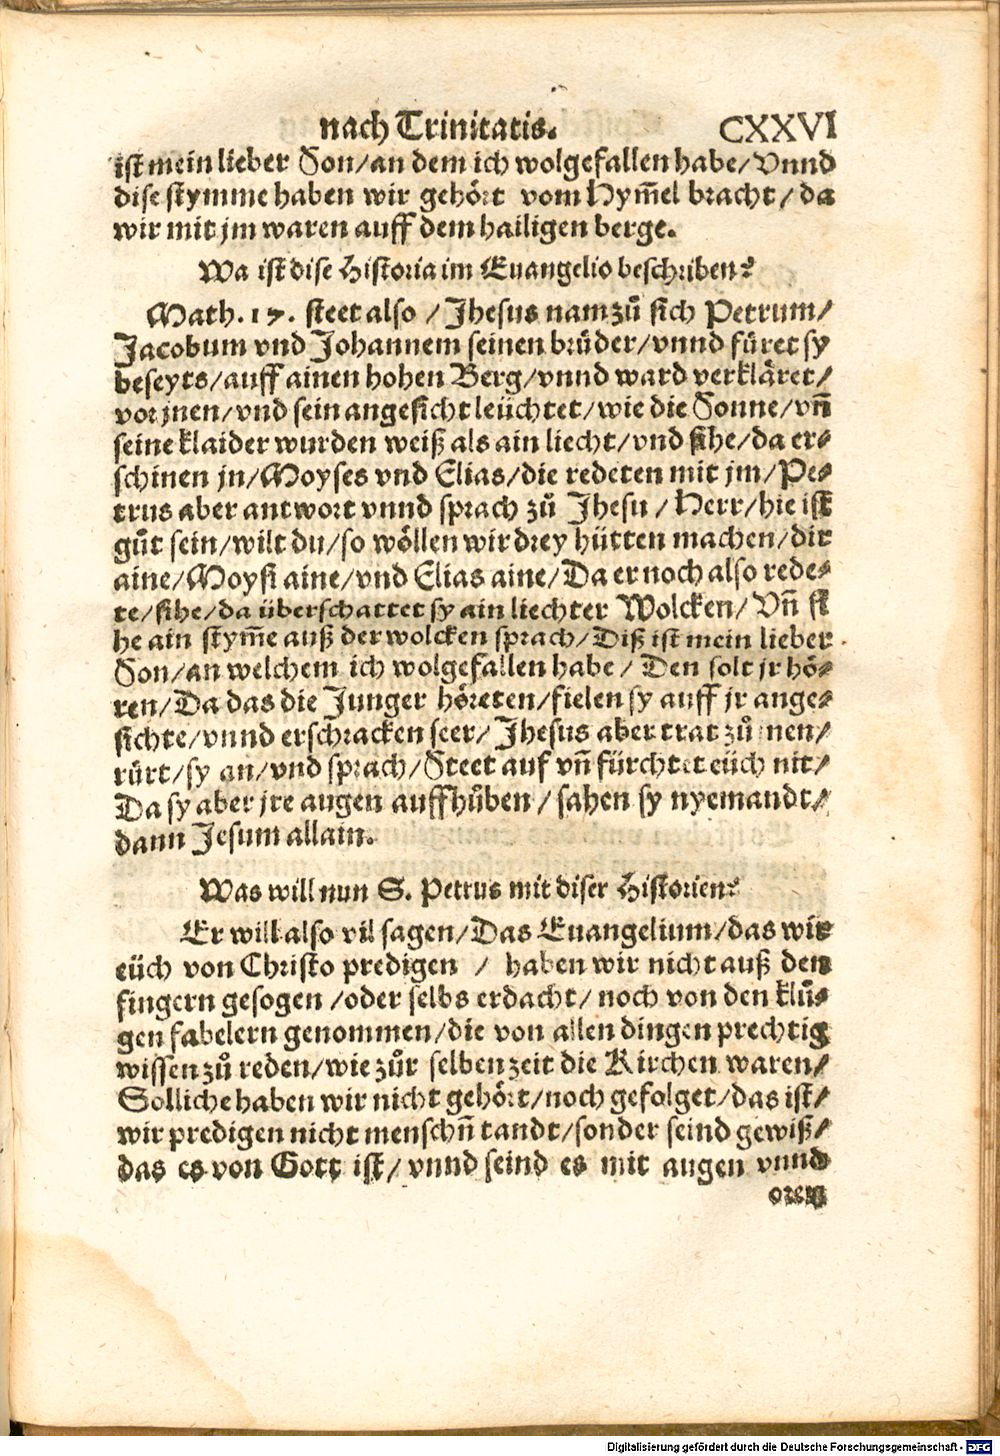 nach Trinitatis. CXXVI
ist mein lieber Son/an dem ich wolgefallen habe/Vnnd
dise stymme haben wir gehört vom Hym̃el bracht/da
wir mit jm waren auff dem hailigen berge.
Wa ist dise Historia im Euangelio beschriben?
Math. 17. steet also / Jhesus nam zů sich Petrum/
Jacobum vnd Johannem seinen brüder/vnnd füret sy
beseyts/auff ainen hohen Berg/vnnd ward verkläret/
vor jnen/vnd sein angesicht leüchtet/wie die Sonne/vñ
seine klaider wurden weiß als ain liecht/vnd sihe/da er⸗
schinen jn/Moyses vnd Elias/die redeten mit jm/Pe⸗
trus aber antwort vnnd sprach zů Jhesu / Herr/hie ist
gůt sein/wilt du/so wöllen wir drey hütten machen/dir
aine/Moysi aine/vnd Elias aine/Da er noch also rede⸗
te/sihe/da überschattet sy ain liechter Wolcken/Vñ si
he ain stym̃e auß der wolcken sprach/Diß ist mein lieber
Son/an welchem ich wolgefallen habe / Den solt jr hö⸗
ren/Da das die Junger höreten/fielen sy auff jr ange⸗
sichte/vnnd erschracken seer/ Jhesus aber trat zů nen/
rürt/sy an/vnd sprach/Steet auf vñ fürchtet eüch nit/
Da sy aber jre augen auffhůben / sahen sy nyemandt/
dann Jesum allain.
Was will nun S. Petrus mit diser Historien?
Er will also vil sagen/Das Euangelium/das wir
eüch von Christo predigen / haben wir nicht auß den
fingern gesogen /oder selbs erdacht/ noch von den klů⸗
gen fabelern genommen/die von allen dingen prechtig
wissen zů reden/wie zůr selben zeit die Kirchen waren/
Solliche haben wir nicht gehört/noch gefolget/das ist/
wir predigen nicht menschñ tandt/sonder seind gewiß/
das es von Gott ist/ vnnd seind es mit augen vnnd
oren
Digitalisierung gefördert durch die Deutsche Forschungsgemeinschaft - DFG